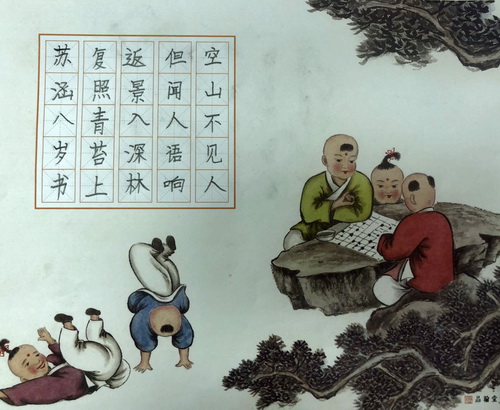 空山不见人
但闻人语响
返景入深林
复照青苔上
苏涵八岁书